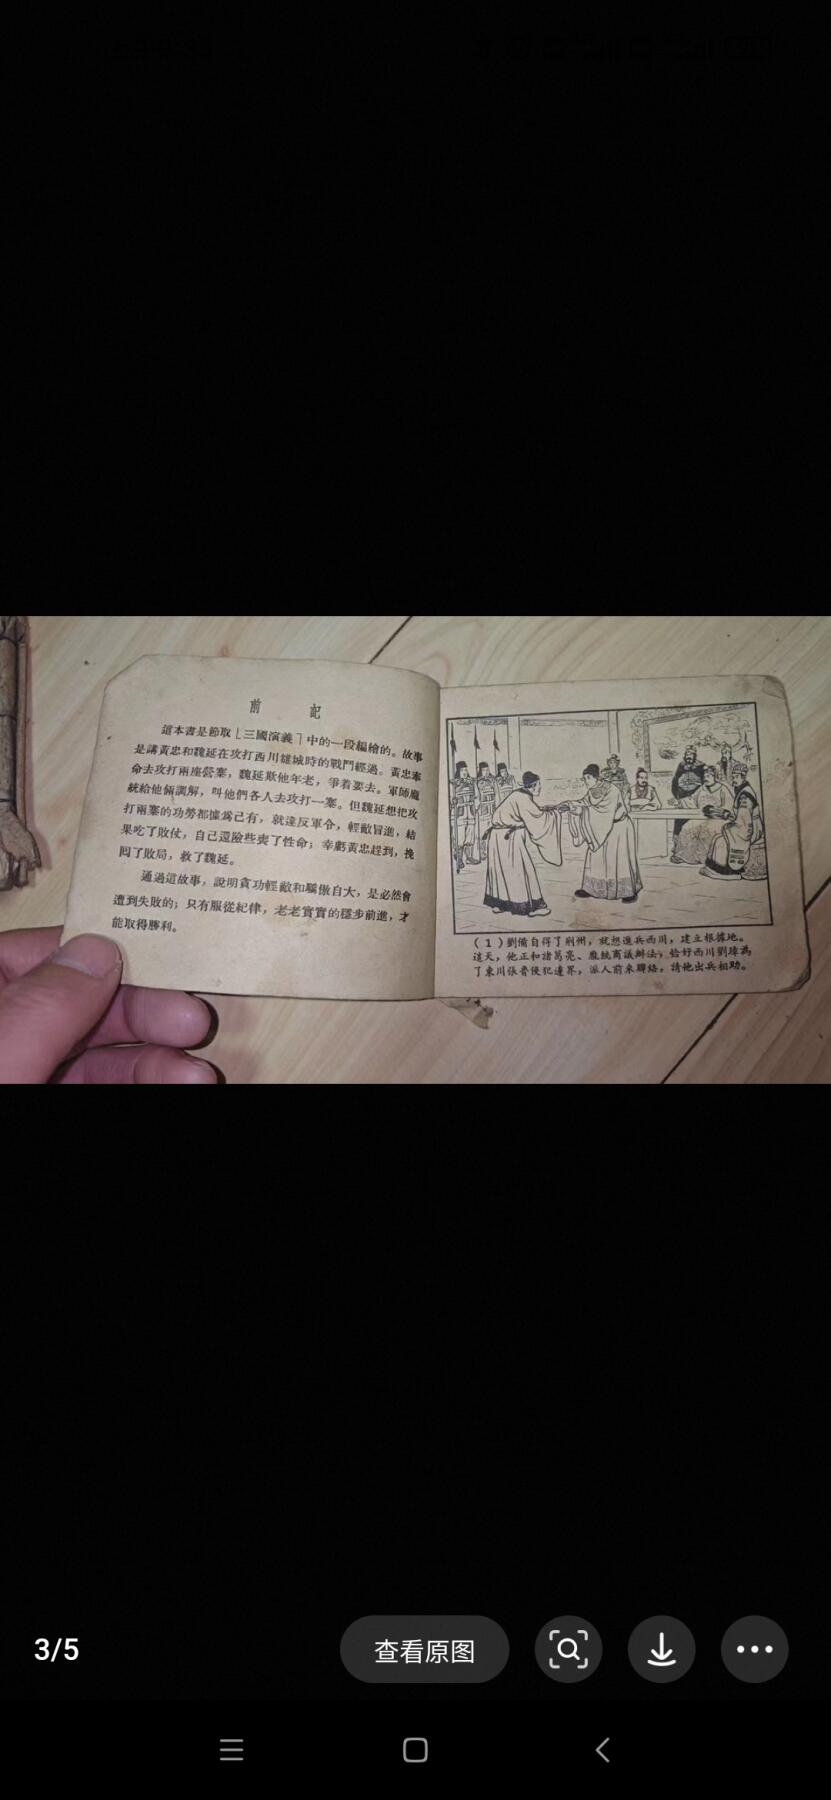 前 記
這本書是節取「三國演義」中的一段編繪的。故事
是講黃忠和魏延在攻打西川雒城時的戰鬥經過。黃忠奉
命去攻打兩座營寨，魏延欺他年老，爭着要去。軍師龐
統給他倆調解，叫他們各人去攻打一寨。但魏延想把攻
打兩寨的功勞都攄爲己有，就違反軍令，輕敵冒進，結
果吃了敗仗，自己還險些喪了性命；幸虧黃忠趕到，挽
囘了敗局，救了魏延。
通過這故事，說明貪功輕敵和驕傲自大，是必然會
遭到失敗的；只有服從紀律，老老實實的穩步前進，才
能取得勝利。
（1）劉備自得了荆州，就想進兵西川，建立根據地。
這天，他正和諸葛亮、龐統商議辦法，恰好西川劉璋爲
了東川張魯侵犯邊界，派人前來聯絡，請他出兵相助。
3/5
查看原图